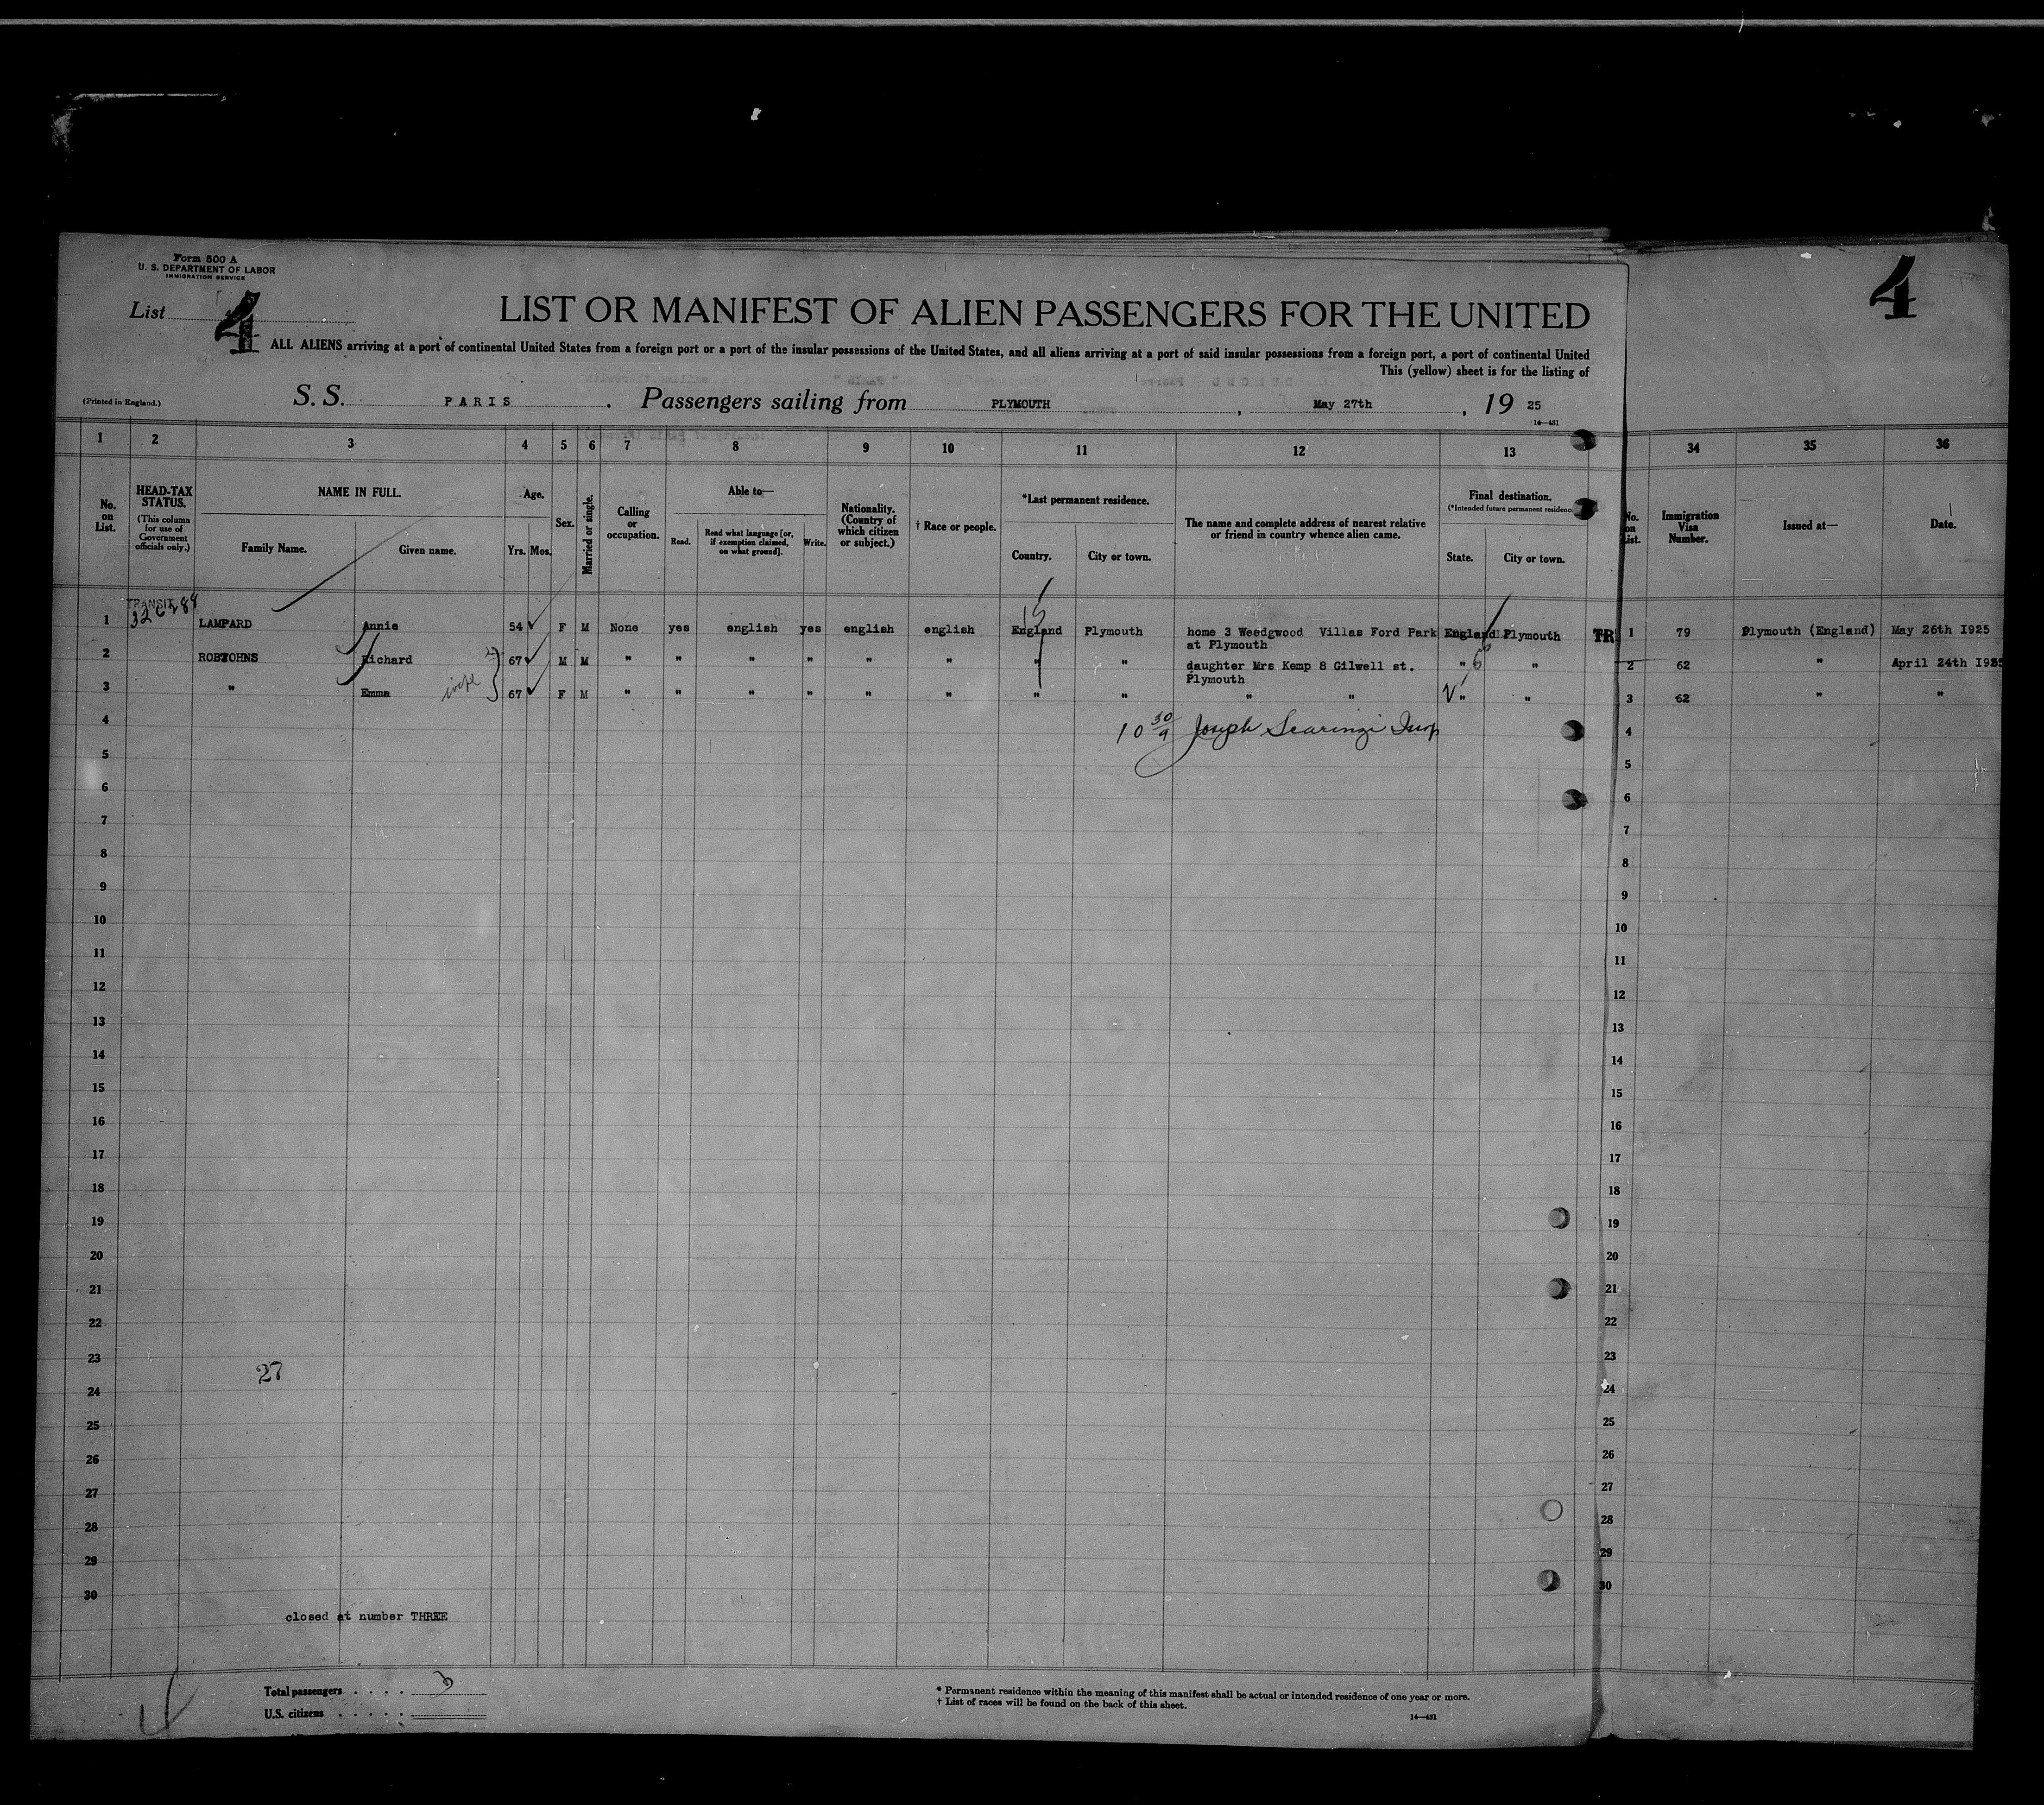 Form 500 A
U. S. DEPARTMENT OF LABOR
IMMIGRATION SERVICE
List 4
4
LIST OR MANIFEST OF ALIEN PASSENGERS FOR THE UNITED
ALL ALIENS arriving at a port of continental United States from a foreign port or a port of the insular possessions of the United States, and all aliens arriving at a port of said insular possessions from a foreign port, a port of continental United
This (yellow) sheet is for the listing of
(Printed in England.)
S. S. PARIS . Passengers sailing from PLYMOUTH , May 27th , 19 25
14—431
1 2 3 4 5 6 7 8 9 10 11 12 13 34 35 36
No. on List.
HEAD-TAX STATUS.
(This column for use of Government officials only.)
NAME IN FULL.
Family Name. Given name.
Age.
Yrs. Mos.
Sex.
Married or single.
Calling or occupation.
Able to—
Read. Read what language [or, if exemption claimed, on what ground]. Write.
Nationality. (Country of which citizen or subject.)
† Race or people.
*Last permanent residence.
Country. City or town.
The name and complete address of nearest relative or friend in country whence alien came.
Final destination.
(*Intended future permanent residence
State. City or town.
No. on List.
Immigration Visa Number.
Issued at—
Date.
TRANSIT
1 LAMPARD Annie 54 F M None yes english yes english english England Plymouth home 3 Weedgwood Villas Ford Park England Plymouth TR 1 79 Plymouth (England) May 26th 1925
at Plymouth
2 Richard 67 M M " " " " " " " " daughter Mrs Kemp 8 Gilwell st. " " 2 62 " April 24th 1925
Plymouth
3 " Emma wife 67 F M " " " " " " " " " " " " 3 62 " "
4 10 30/a Joseph Scaringi Insp 4
5 5
6 6
7 7
8 8
9 9
10 10
11 11
12 12
13 13
14 14
15 15
16 16
17 17
18 18
19 19
20 20
21 21
22 22
23 23
27
24 24
25 25
26 26
27 27
28 28
29 29
30 30
closed at number THREE
Total passengers . . . . . 3
U.S. citizens . . . . .
* Permanent residence within the meaning of this manifest shall be actual or intended residence of one year or more.
† List of races will be found on the back of this sheet.
14—431